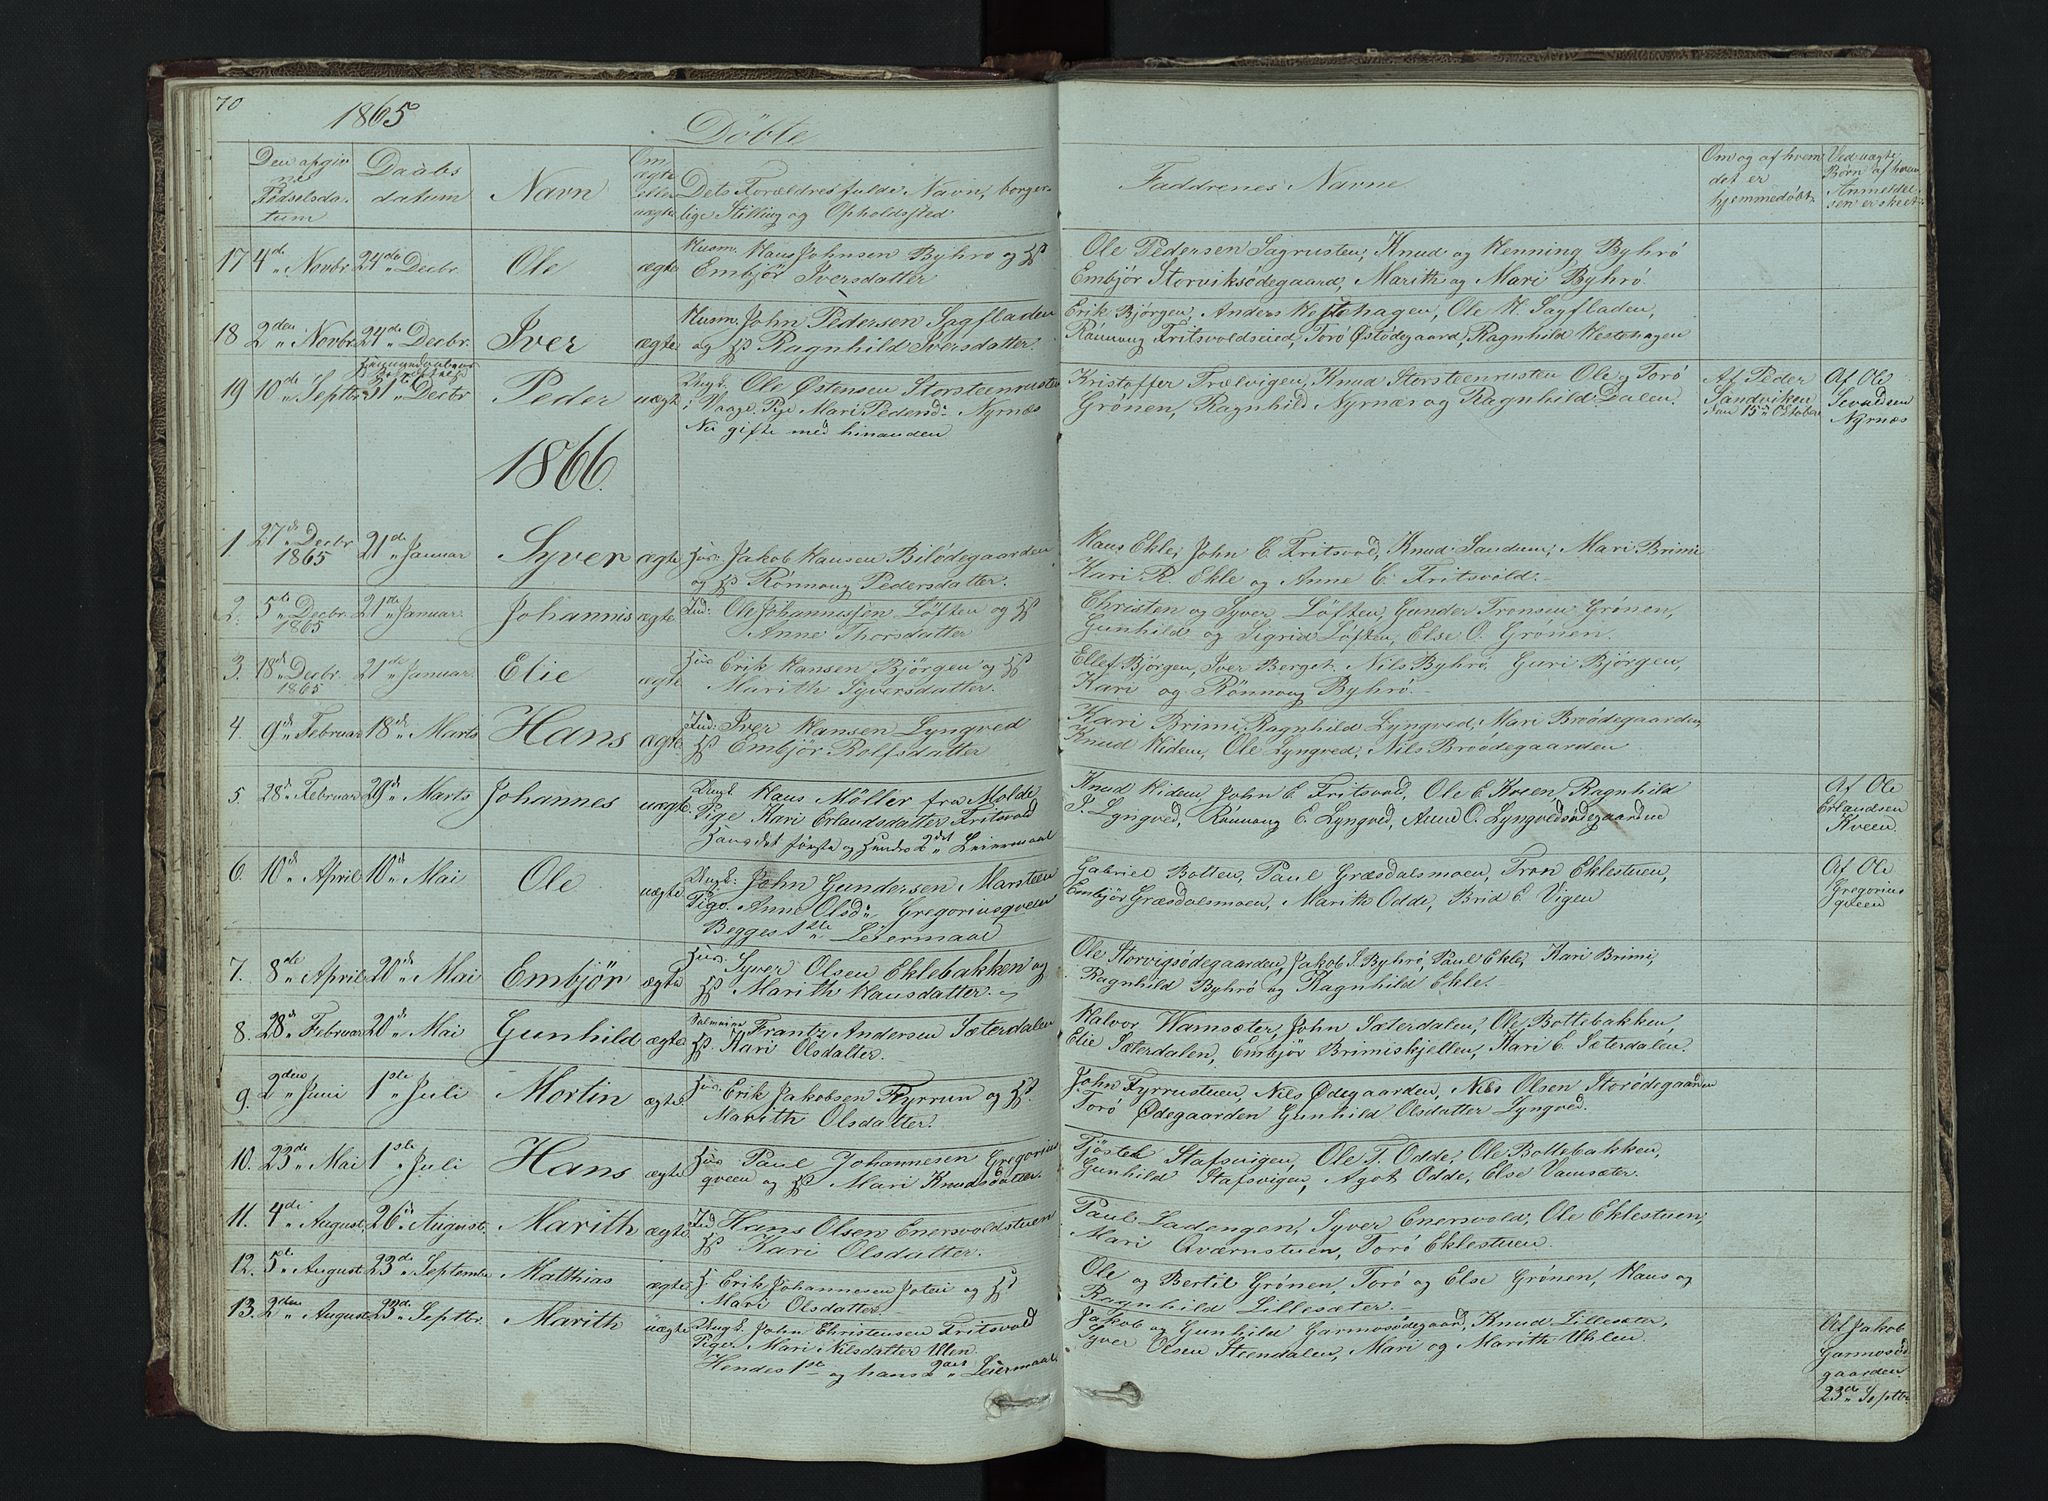 70
1865
Döbte
Den afgiv
ne
Födselsda-
tum
Daabs
datum
Navn
Om
ægte
eller
uægte
Dets Forældres fulde Navn, borger-
lige Stilling og Opholdssted
Faddrenes Navne
Om og af hvem
det er
hjemmedöbt.
Ved uægte
Børn af hvem
Anmeldel
sen er skeet.
17 4de „ Novbr. 24de „ Decbr. Ole ægte Husm. Hans Johnsen Byhrö og H
Embjör Iversdatter
Ole Pedersen Sagrusten, Knud og Henning Byhrö
Embjör Storviksödegaard, Marith og Mari Byhrö.
18 2den „ Novbr. 24de „ Decbr. Iver ægte Husm. John Pedersen Sagfladen
og H Ragnhild Iversdatter.
Erik Bjørgen, Anders Hestehagen, Ole H. Sagfladen,
Rönnaug Fritsvoldseied, Torö Østödegaard, Ragnhild Hestehagen
19 10de „ Septbr. 31te „ Decbr. Peder uægte Ungk. Ole Østensen Storsteenrusten
i Vaage. Pge Mari Pedersd: Nyrnæs
Nu gifte med hinanden
Kristoffer Trælvigen, Knud Storsteenrusten Ole og Torö
Grönen, Ragnhild Nyrnæs og Ragnhild Dalen.
Af Peder
Sandviken
den 15de October
Af Ole
Sevaldsen
Nyrnæs
1866.
1. 27de „ Decbr. 1865 21de „ Januar Syver ægte Hus: Jakob Hansen Bilödegaarden
og H Rönnaug Pedersdatter.
Hans Ekle, John E. Fritsvod, Knud Sandum, Mari Brimi
Kari R. Ekle og Anne E. Fritsvold.
2. 5te „ Decbr. 1865 21de „ Januar. Johannis ægte Ind: Ole Johannesen Löften og H
Anne Thorsdatter
Christen og Syver Löften, Gunder Tronsen Grönen,
Gunhild og Sigrid Löften, Else O. Grönen.
3. 18de „ Decbr. 1865 21de „ Januar. Elie ægte Hus Erik Hansen Bjørgen og H
Marith Syversdatter.
Ellef Bjørgen, Iver Berget, Nils Byhrö, Guri Bjørgen,
Kari og Rönnaug Byhrö.
4. 9de „ Februar 18de „ Marts Hans ægte Ind: Iver Hansen Lyngved
H Embjör Rolfsdatter
Kari Brimi, Ragnhild Lyngved, Mari Broödegaarden,
Knud Hiden, Ole Lyngved, Nils Broödegaarden
5. 28de „ Februar 29de „ Marts Johannes uægte Ungk Hans Möller fra Molde
Pige Kari Erlandsdatter Fritsvold
Hans det förste og Hendes 2det Leiermaal
Knud Hiden, John E. Fritsvod, Ole E. Kveen, Ragnhild
I. Lyngved, Rönnaug E. Lyngved, Anne O. Lyngvedsödegaarden
Af Ole
Erlandsen
Kveen.
6. 10de „ April 10de „ Mai Ole uægte Ungk: John Gundersen Marsteen
Pige. Anne Olsd: Gregoriusqveen
Begges 1ste Leiermaal
Gabriel Botten, Paul Græsdalsmoen, Tron Eklestuen,
Embjör Græsdalsmoen, Marith Odde, Brid E. Vigen
Af Ole
Gregorius
qveen
7. 8de „ April 20de „ Mai Embjör ægte Hus. Syver Olsen Eklebakken og
H Marith Hansdatter.
Ole Storvigsödegaarden, Jakob S. Byhrö, Paul Ekle, Kari Brimi,
Ragnhild Byhrö og Ragnhild Ekle.
8. 28de „ Februar 20de „ Mai Gunhild ægte Frantz Andersen Sæterdalen
H. Kari Olsdatter.
Halvor Vamsæter, John Sæterdalen, Ole Bottebakken,
Elie Sæterdalen, Embjör Brimiskjellen, Kari E. Sæterdalen.
9. 2den „ Juni 1ste „ Juli Mortin ægte. Hus. Erik Jakobsen Fyrrun og H
Marith Olsdatter.
John Fyrrustuen, Nils Ødegaarden, Nils Olsen Storödegaarden
Torö Ødegaarden Gunhild Olsdatter Lyngved.
10. 23de „ Mai 1ste „ Juli Hans ægte Hus Paul Johannesen Gregorius
qveen og H Mari Knudsdatter.
Tjöstel Stafsvigen, Ole T. Odde, Ole Bottebakken,
Gunhild Stafsvigen, Agot Odde, Else Vamsæter.
11. 4de „ August. 26de „ August. Marith ægte Ind Hans Olsen Enersvoldstuen
H Kari Olsdatter.
Paul Ladangen, Syver Enersvold, Ole Eklestuen,
Mari Qværnstuen, Torö Eklestuen.
12. 5te „ August. 23de „ Septembr Matthias ægte H. Erik Johannesen Joten og H
Mari Olsdatter
Ole og Bertil Grönen, Torö og Else Grönen, Hans og
Ragnhild Lillesæter.
13. 2den „ August 23de „ Septbr. Marith uægte Ungk. John Christensen Fritsvold
Pige Mari Nilsdatter Ulen.
Hendes 1ste og hans 2det „ Leiermaal.
Jakob og Gunhild Garmosödegaard, Knud Lillesæter,
Syver Olsen Steendalen, Mari og Marith Uhlen.
Af Jakob
Garmosöd
gaarden
23de „ Septbr.